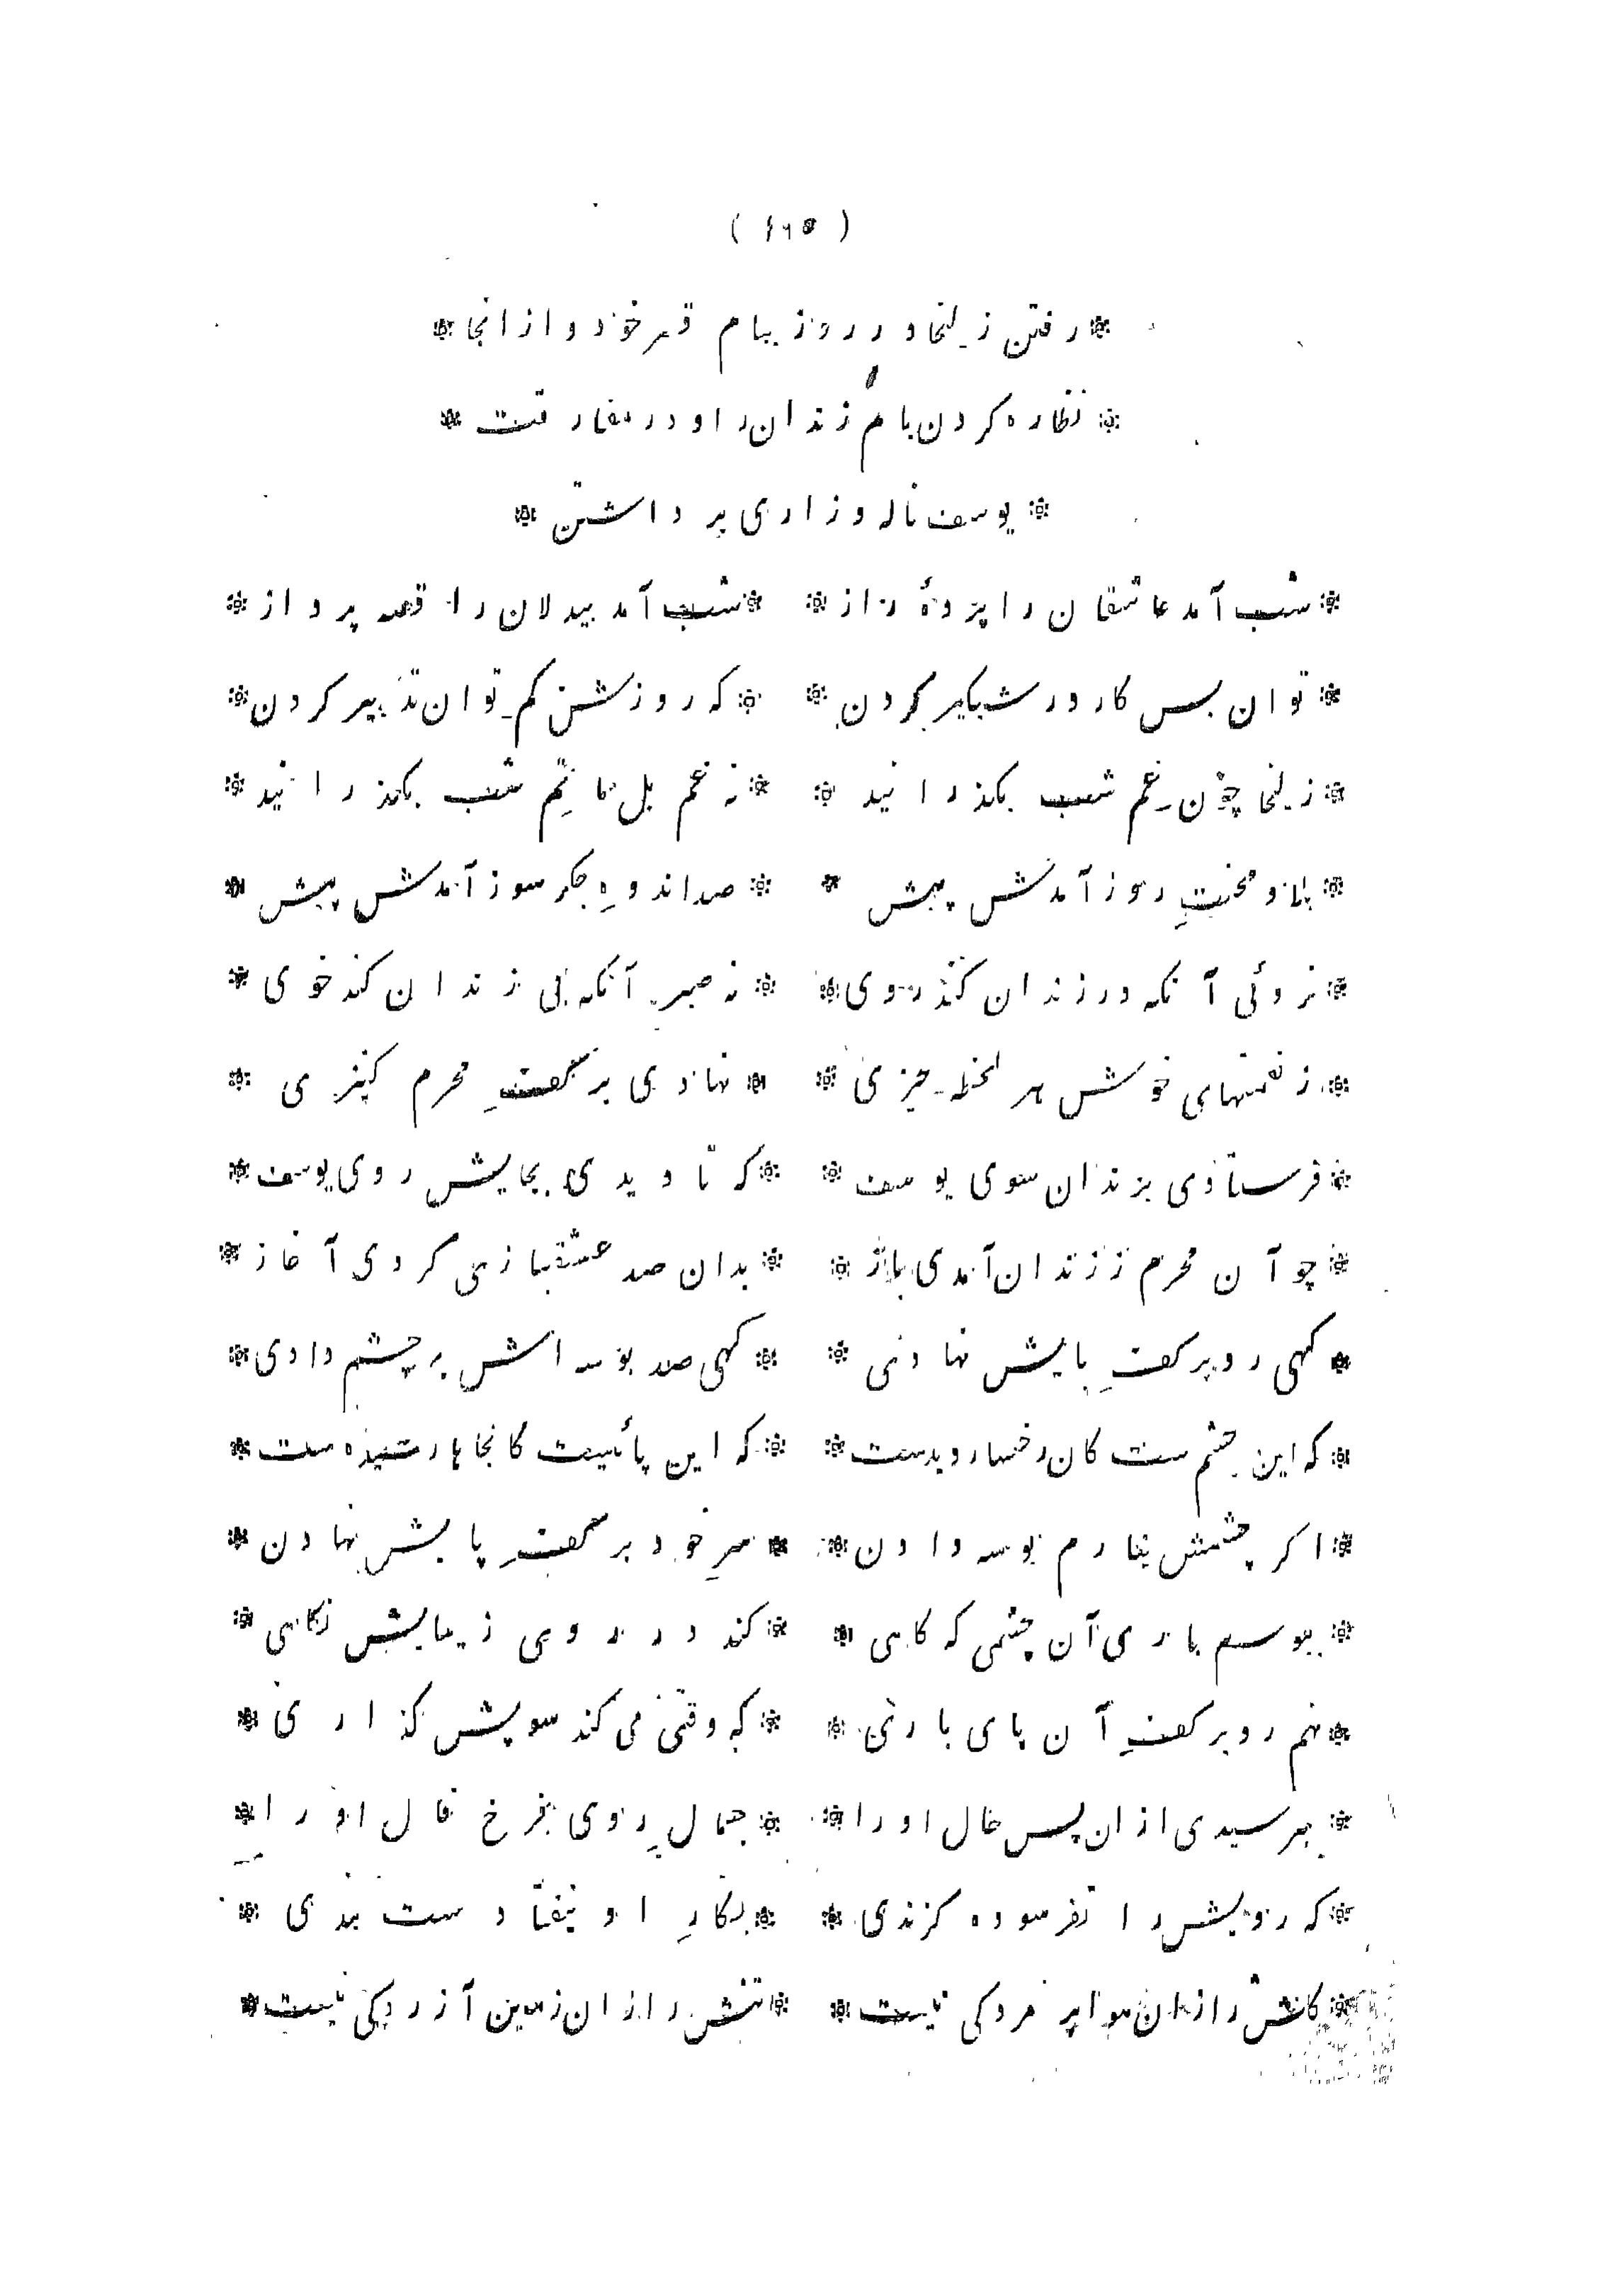 ( ۱۶۵ )
* رفتن زلیخا در روز ببام قصر خود و از انجا *
* نظاره کردن بام زندان را و در مفارقت *
* یوسف ناله و زاری بر داشتن *
* شب آمد عاشقان را پردهٔ راز * * شب آمد بیدلان را قصه پرداز *
* توان بس کار در شبکیر کردن * * که روزش کم توان تدبیر کردن *
* زلیخا چون غم شب بکذرانید * * نه غم بل ماتم شب بکذرانید *
* بلا و محنتِ روز آمدش پیش * * صد اندوهِ جکر سوز آمدش پیش *
* نروئی آنکه در زندان کند روی * * نه صبر آنکه بی زندان کند خوی *
* ز نعمتهای خوش هر لحظه چیزی * * نهادی بر کفِ محرم کنیزی *
* فرستادی بزندان سوی یوسف * * که تا دیدی بجایش روی یوسف *
* چو آن محرم ز زندان آمدی باز * * بدان صد عشقبازی کردی آغاز *
* کهی رو بر کفِ پایش نهادی * * کهی صد بوسه اش بر چشم دادی *
* که این چشم ست کان رخسار دیدست * * که این پائیست کانجا ها رسیده ست *
* اکر چشمش نیارم بوسه دادن * * سرِ خود بر کفِ پایش نهادن *
* ببوسم باری آن چشمی که کاهی * * کند در روی زیبایش نکاهی *
* نهم رو بر کفِ آن پای باری * * که وقتی می کند سویش کذاری *
* بپرسیدی ازان پس حال او را * * جمالِ روی فرخ فال او را *
* که رویش را نفرسوده کزندی * * بکارِ او نیفتادست بندی *
* کلش را ازان هوا پژمردکی نیست * * تنش را ازان زمین آزردکی نیست *